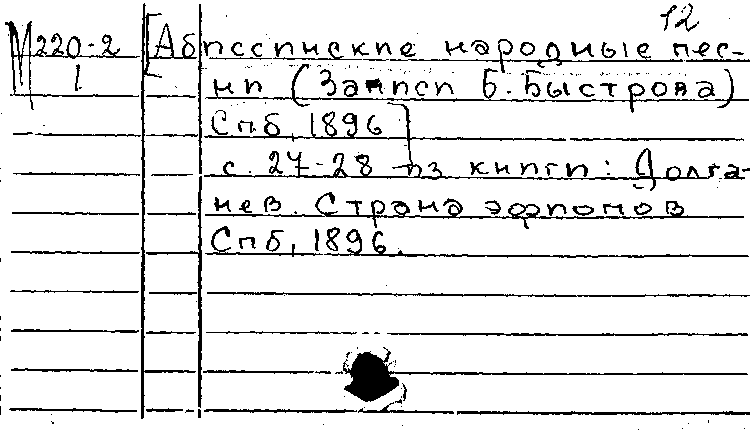 12
М220-2 [Абиссинские народные пес-
1 ни (Записи Б. Быстрова)
Спб, 1896]
с. 27-28 из книги: Долга-
нев. Страна эфиопов
Спб, 1896.